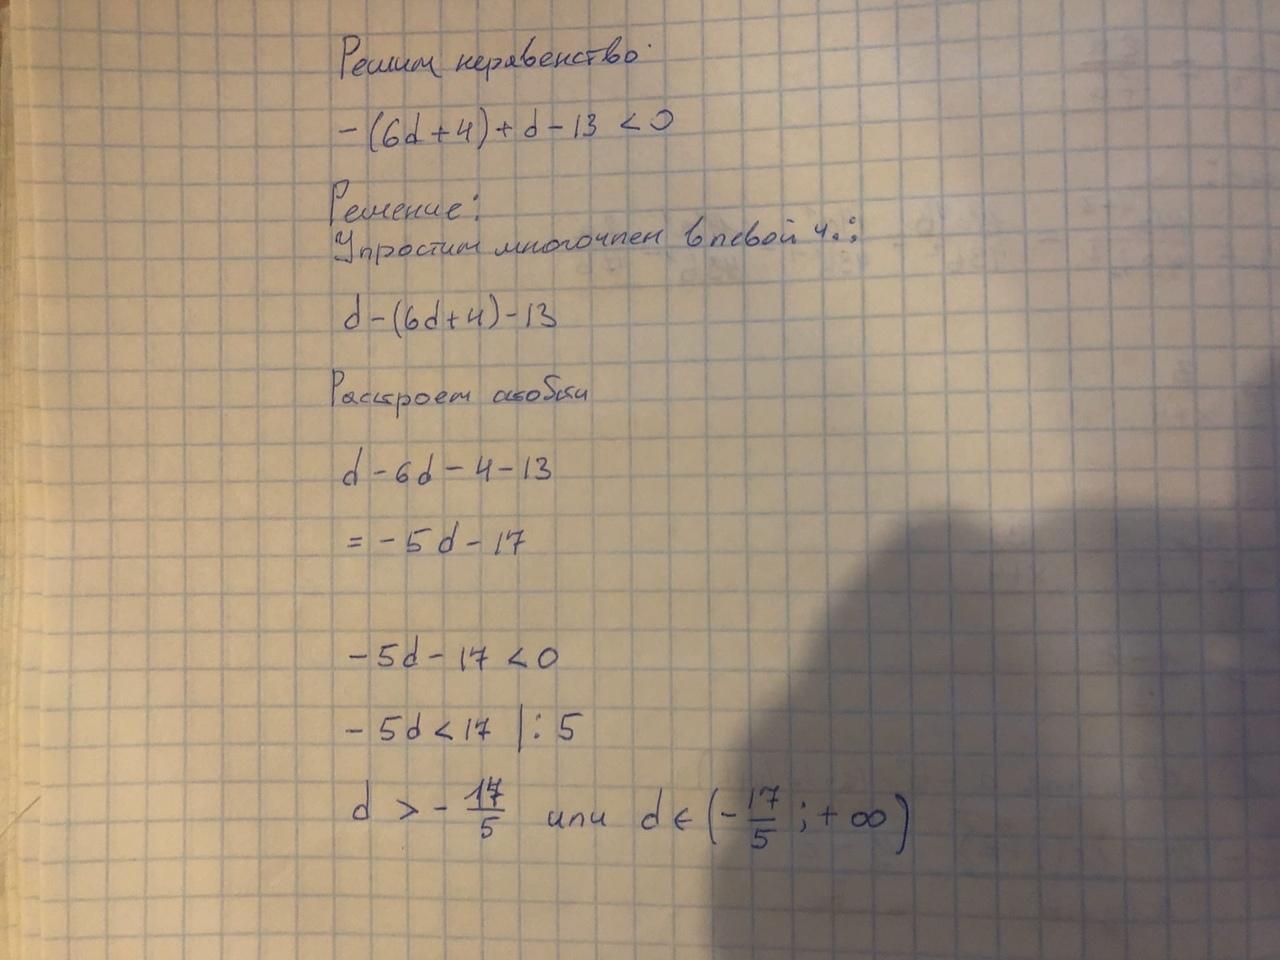 Решим неравенство:
-(6d+4)+d-13 <0
Решение:
Упростим многочлен в левой ч.:
d-(6d+4)-13
Раскроем скобки
d-6d-4-13
= -5d-17
-5d-17 <0
-5d<17 |:5
d > -17/5 или d ∈ (-17/5; +∞)